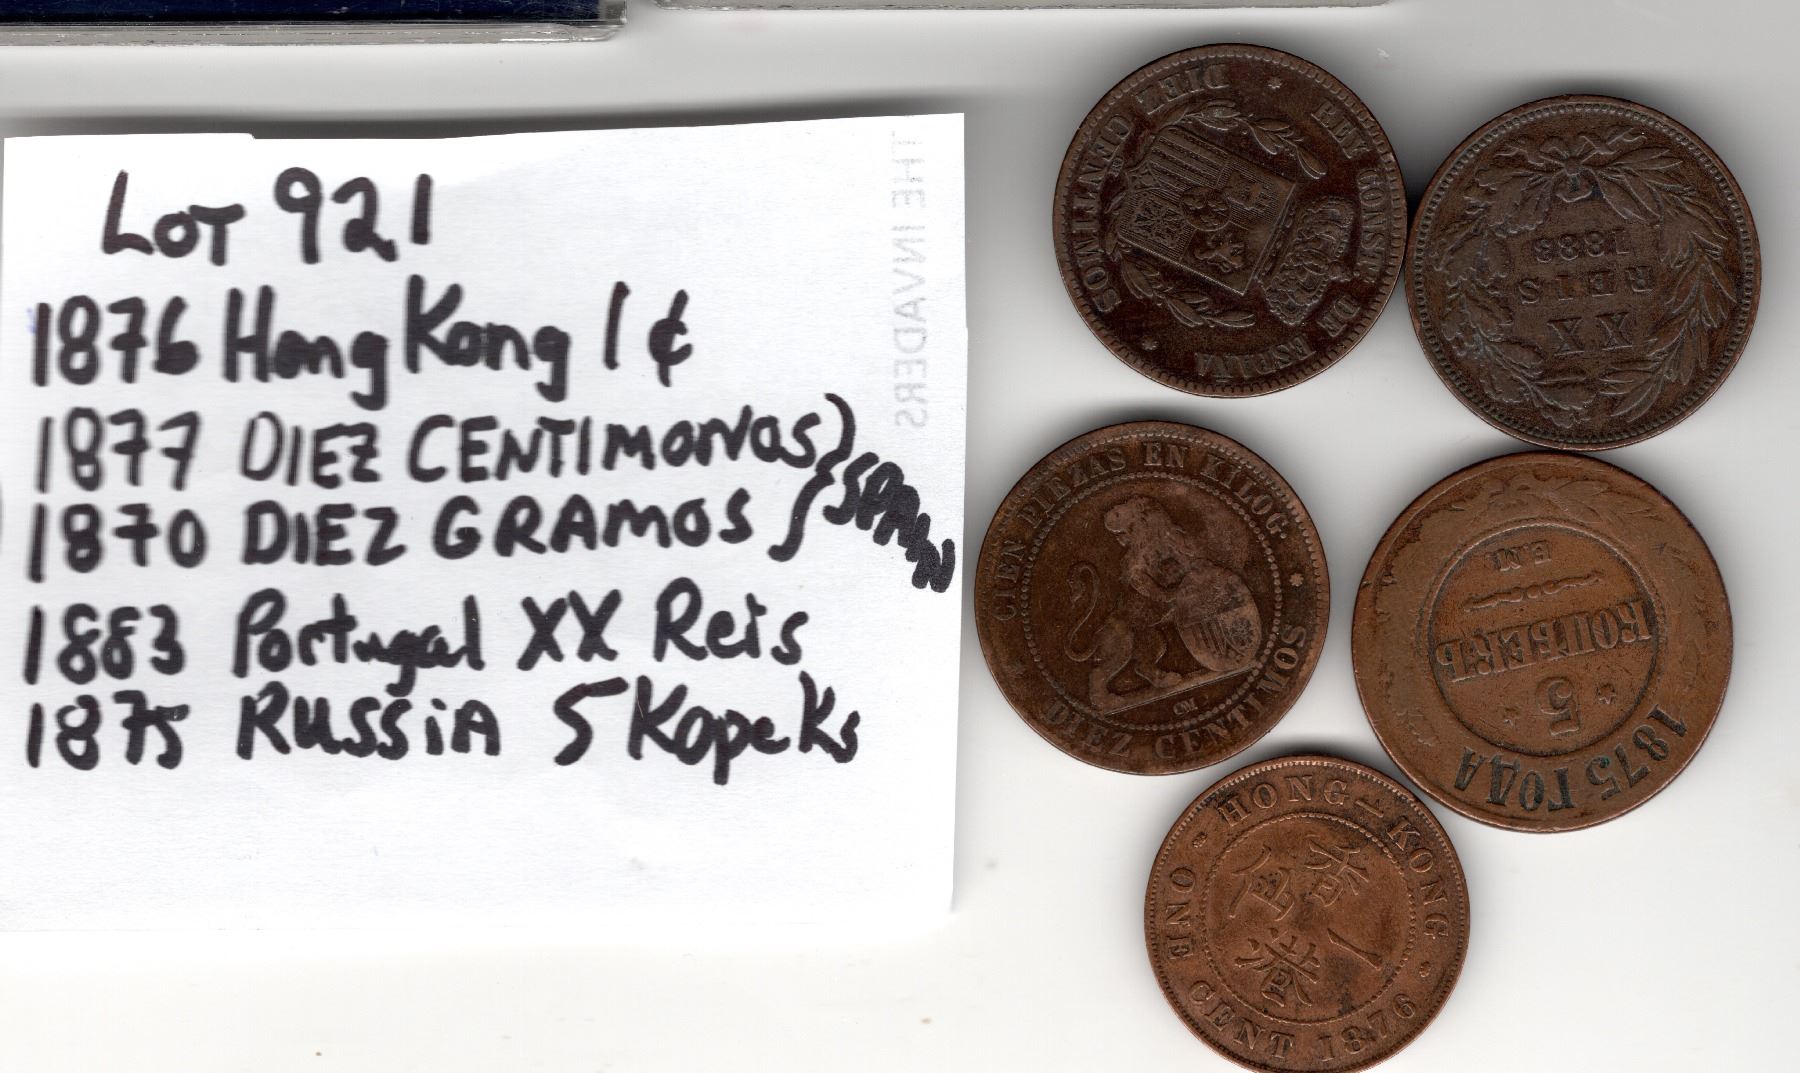 LOT 921
1876 Hong Kong 1¢
1877 DIEZ CENTIMONOS } SPAIN
1870 DIEZ GRAMOS
1883 Portugal XX Reis
1875 RUSSIA 5 Kopeks
THE INVADERS
REY CONST. DE ESPAÑA
DIEZ CENTIMOS
XX
REIS
1883
CIEN PIEZAS EN KILOG.
DIEZ CENTIMOS
OM
5
КОПѢЕКЪ
Е.М.
1875 ГОДА
HONG-KONG
香港一仙
ONE CENT 1876